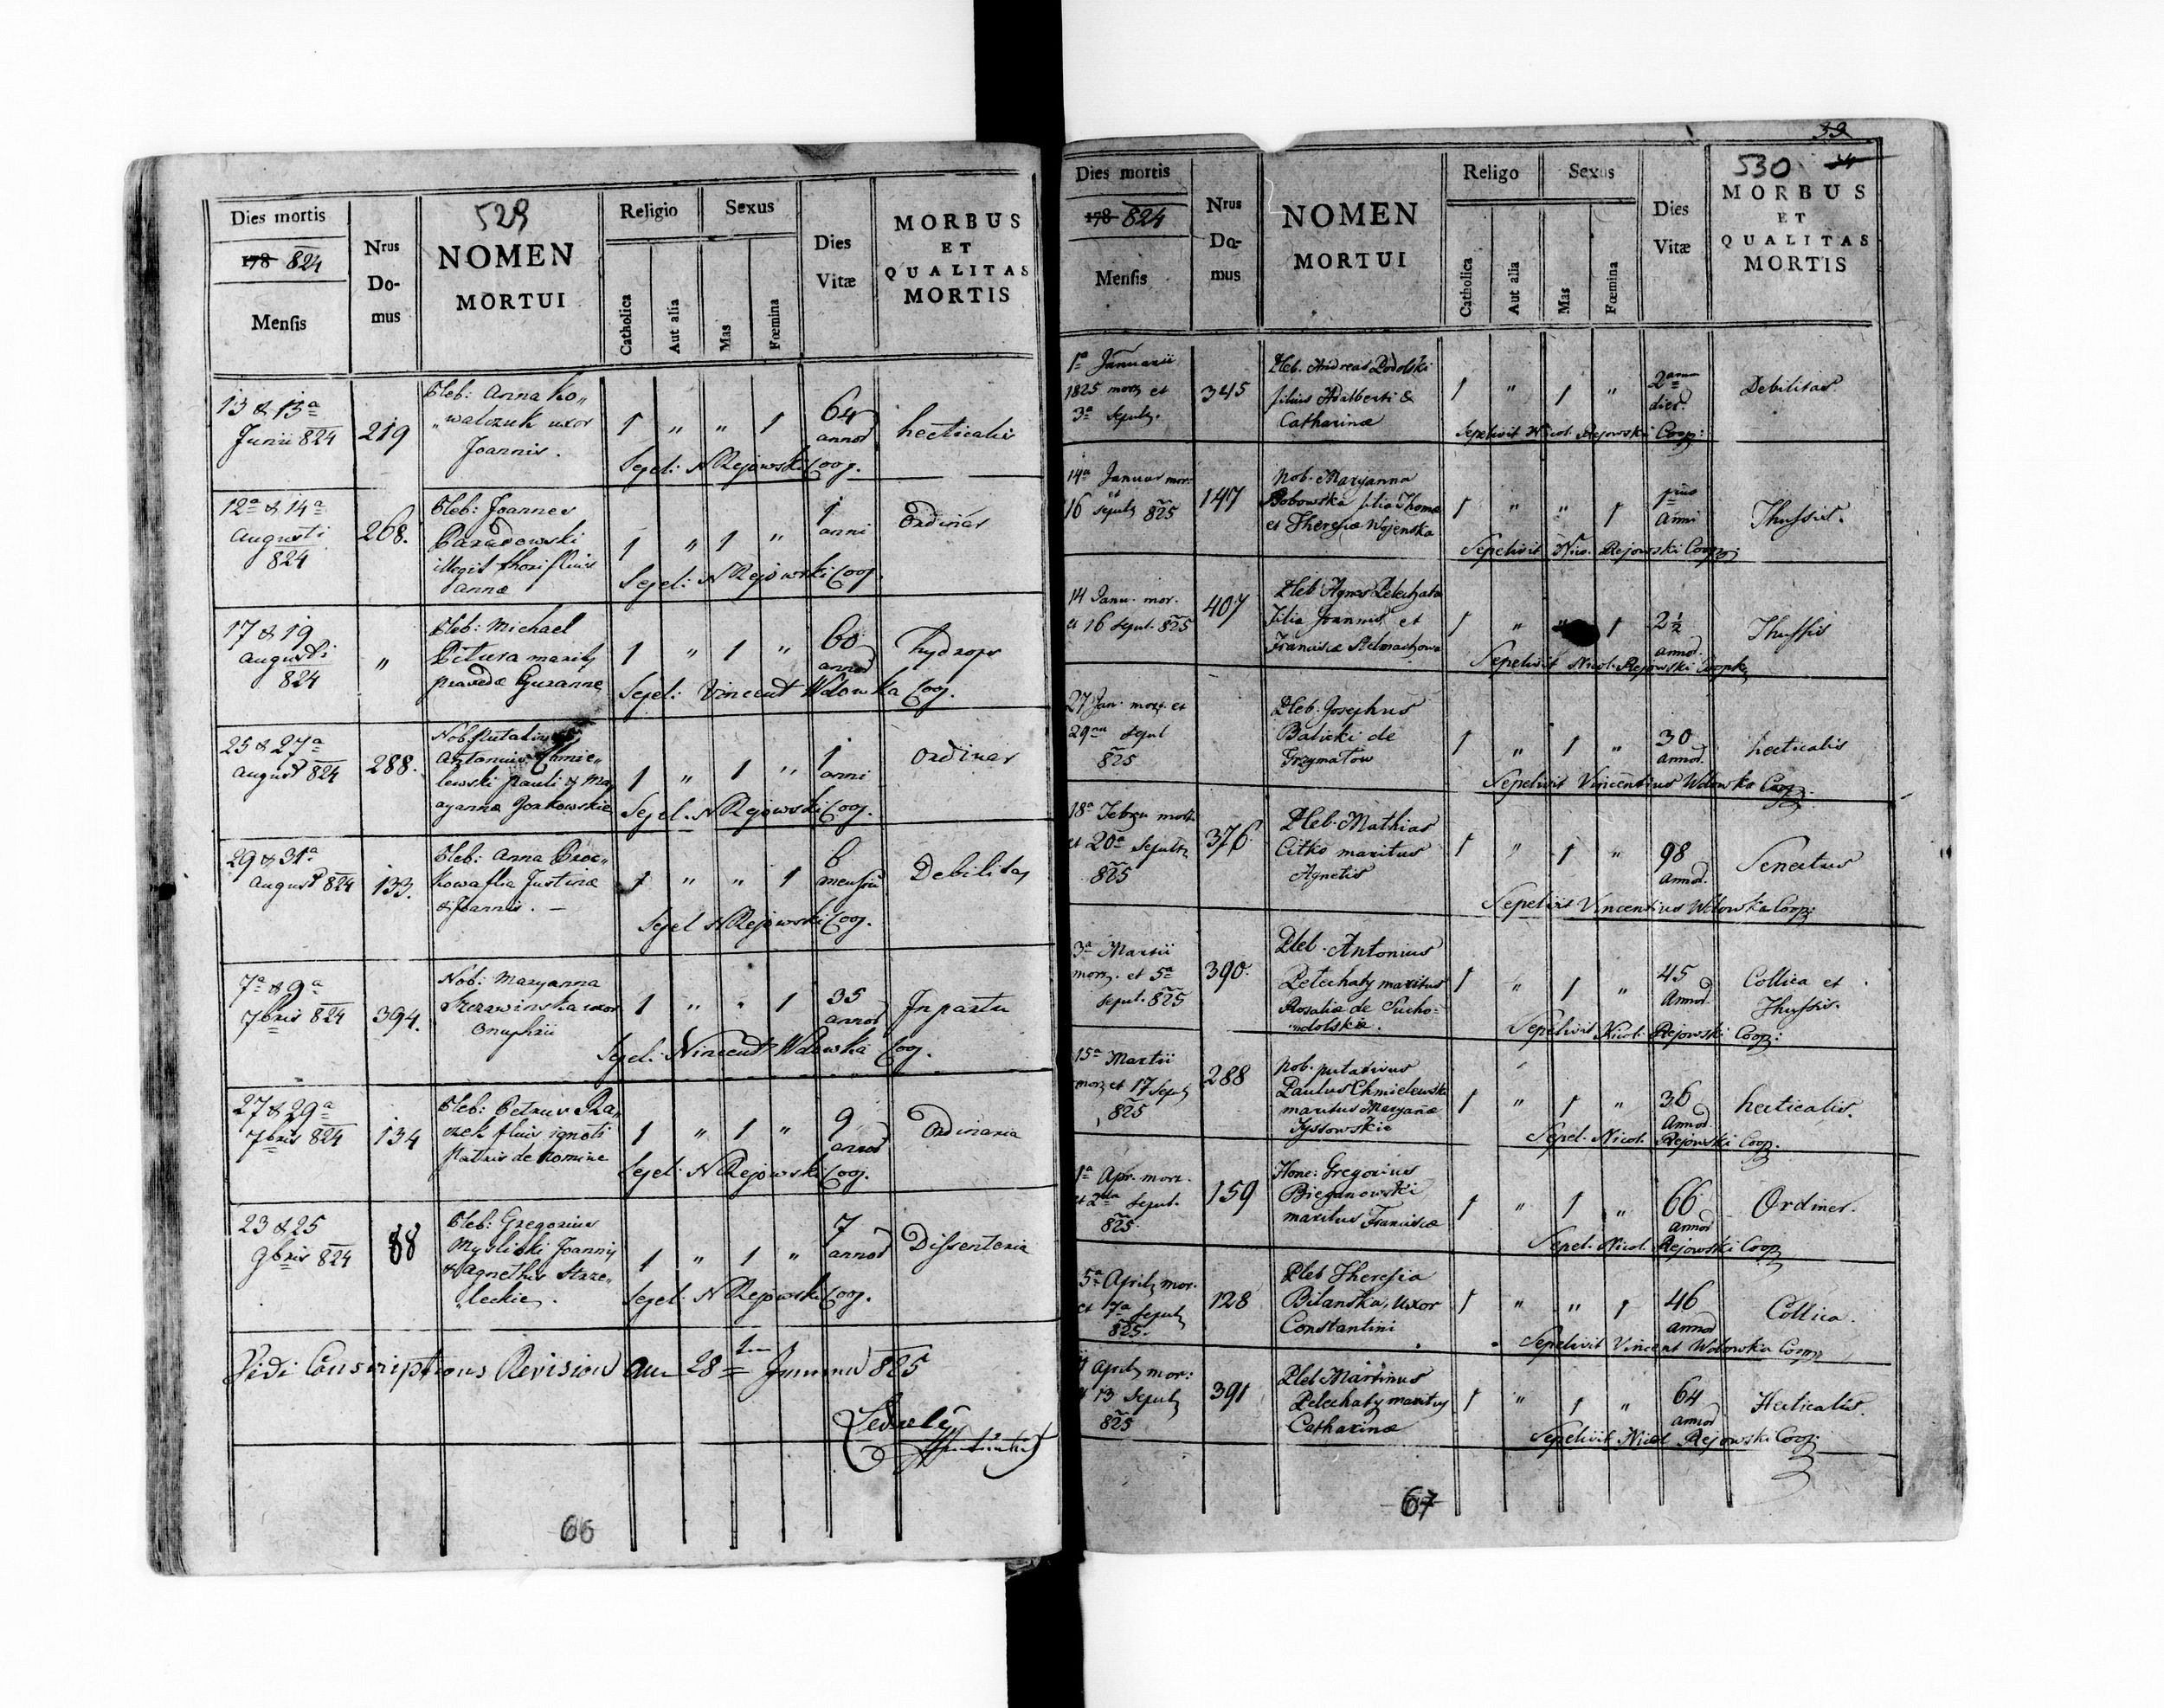 529
Dies mortis
178 824
Mensis
Nrus
Do-
mus
NOMEN
MORTUI
Religio
Catholica
Aut alia
Sexus
Mas
Fœmina
Dies
Vitæ
MORBUS
ET
QUALITAS
MORTIS
13 & 13a
Junii 824
219
Pleb: Anna Ko„
„walczuk uxor
Joannis.
1 „ „ 1
64
annor
hecticalis
Sepel: N Rejowski Coop.
12a & 14a
Augusti
824
268.
Pleb: Joannes
Paradowski
illegit thori filius
Annæ
1 „ 1 „
1
anni
Ordinar
Sepel: N Rejowski Coop.
17 & 19
Augusti
824
„
Pleb: Michael
Pitura
1 „ 1 „
60
annor
hydrops
Sepel: Vincent Wdowka Coop.
25 & 27a
August 824
288.
Nob putativus
Antonius Chmie„
lewski Pauli & Ma
ryannæ
1 „ 1 „
1
anni
Ordinar
Sepel. N Rejowski Coop.
29 & 31a
August 824
133.
Pleb: Anna
kowa flia Justinæ
& Joannis. –
1 „ „ 1
6
mensiu
Debilitas
Sepel N Rejowski Coop.
7a & 9a
7bris 824
394.
Nob: Maryanna
Szczawinska uxor
Onuphrii
1 „ „ 1
35
annor
In partu
Sepel: Vincent Wdowka Coop.
27 & 29a
7bris 824
134
Pleb: Petrus Ra„
czek flius ignoti
Patris de Nomine
1 „ 1 „
9
annor
Ordinaria
Sepel: N Rejowski Coop.
23 & 25
9bris 824
88
Pleb: Gregorius
Myslicki Joannis
& Agnethis Strze„
„leckie.
1 „ 1 „
7
annor
Dissenteria
Sepel: N Rejowski Coop.
Vidi Conscriptions Revision am 28 825
66
39
530
Dies mortis
178 824
Mensis
Nrus
Do-
mus
NOMEN
MORTUI
Religo
Catholica
Aut alia
Sexus
Mas
Fœmina
Dies
Vitæ
MORBUS
ET
QUALITAS
MORTIS
1a Januarii
1825 mor et
3a sepul.
345
Pleb. Andreas Podolski
filius Adalberti &
Catharinæ
1 „ 1 „
dier.
Debilitas
Sepelivit Nicol. Rejowski Coop:
14a Januar mor.
et
16 sepul 825
147
Nob. Maryanna
Bobowska filia Thomæ
et Theresiæ Wojenska
1 „ „ 1
Anni
Thussis.
Sepelivit Nico. Rejowski Coop:
14 Janu. mor.
et 16 sepul. 825
407
Pleb Agnes Pelechata
Filia Joannis et
Franciscæ Stelmachowa
1 „ 1
2 1/2
annor.
Thussis
Sepelivit Nicol. Rejowski
27 Jan. mor. et
29na sepul
825
Pleb. Josephus
Balicki de
Trzymatow
1 „ 1 „
30
annor.
hecticalis
Sepelivit Vincentius Wdowka Coop.
18a Febru mor.
et 20a Sepult
825
376
Pleb. Mathias
Citko maritus
Agnetis
1 „ 1 „
98
annor.
Senectus
Sepelivit Vincentius Wdowka Coop:
3a Martii
mor. et 5a
sepul. 825
390.
Pleb. Antonius
Pelechaty maritus
Rosaliæ de Sucho=
=dolskie.
1 „ 1 „
45
Annor.
Collica et
Thussis.
Sepelivit Nicol. Rejowski Coop:
15a Martii
mor. et 17 Sepul
825
288
Nob. putativus
Paulus Chmielewski
maritus Maryannæ
Tyssowskie
1 „ 1 „
36
Annor.
hecticalis.
Sepel. Nicol. Rejowski Coop.
1a Apr. mor.
et 2da sepul.
825.
159
Hone: Gregorius
Bieganowski
maritus Franciscæ
1 „ 1 „
66
annor
Ordiner.
Sepel. Nicol. Rejowski Coop
5a April mor.
et 7a sepul
825.
128
Pleb Theresia
Bilanska, Uxor
Constantini
1 „ „ 1
46
annor
Collica.
Sepelivit Vincent Wdowka Coop
April mor:
& 13 Sepul
825
391
Pleb Martinus
Pelechaty maritus
Catharinæ
1 „ 1 „
64
annor
Hecticalis.
Sepelivit Nicol Rejowski Coop:
67